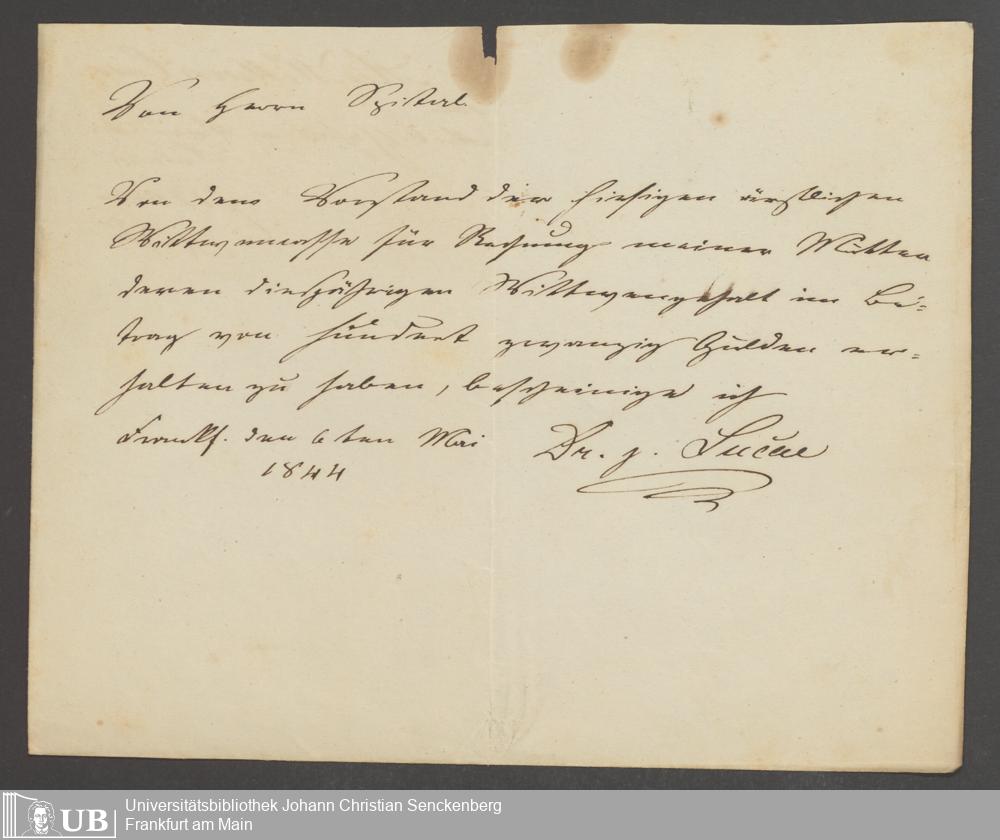 Von Herrn Spital
Von dem Vorstand der hiesigen ärztlichen
Wittwencasse für Rechnung meiner Mutter
deren diesjährigen Wittwengehalt im Be=
trag von hundert zwanzig Gulden er=
halten zu haben, bescheinige ich
Frankf. den 6ten Mai
1844
Dr. Lucae
UB
Universitätsbibliothek Johann Christian Senckenberg
Frankfurt am Main